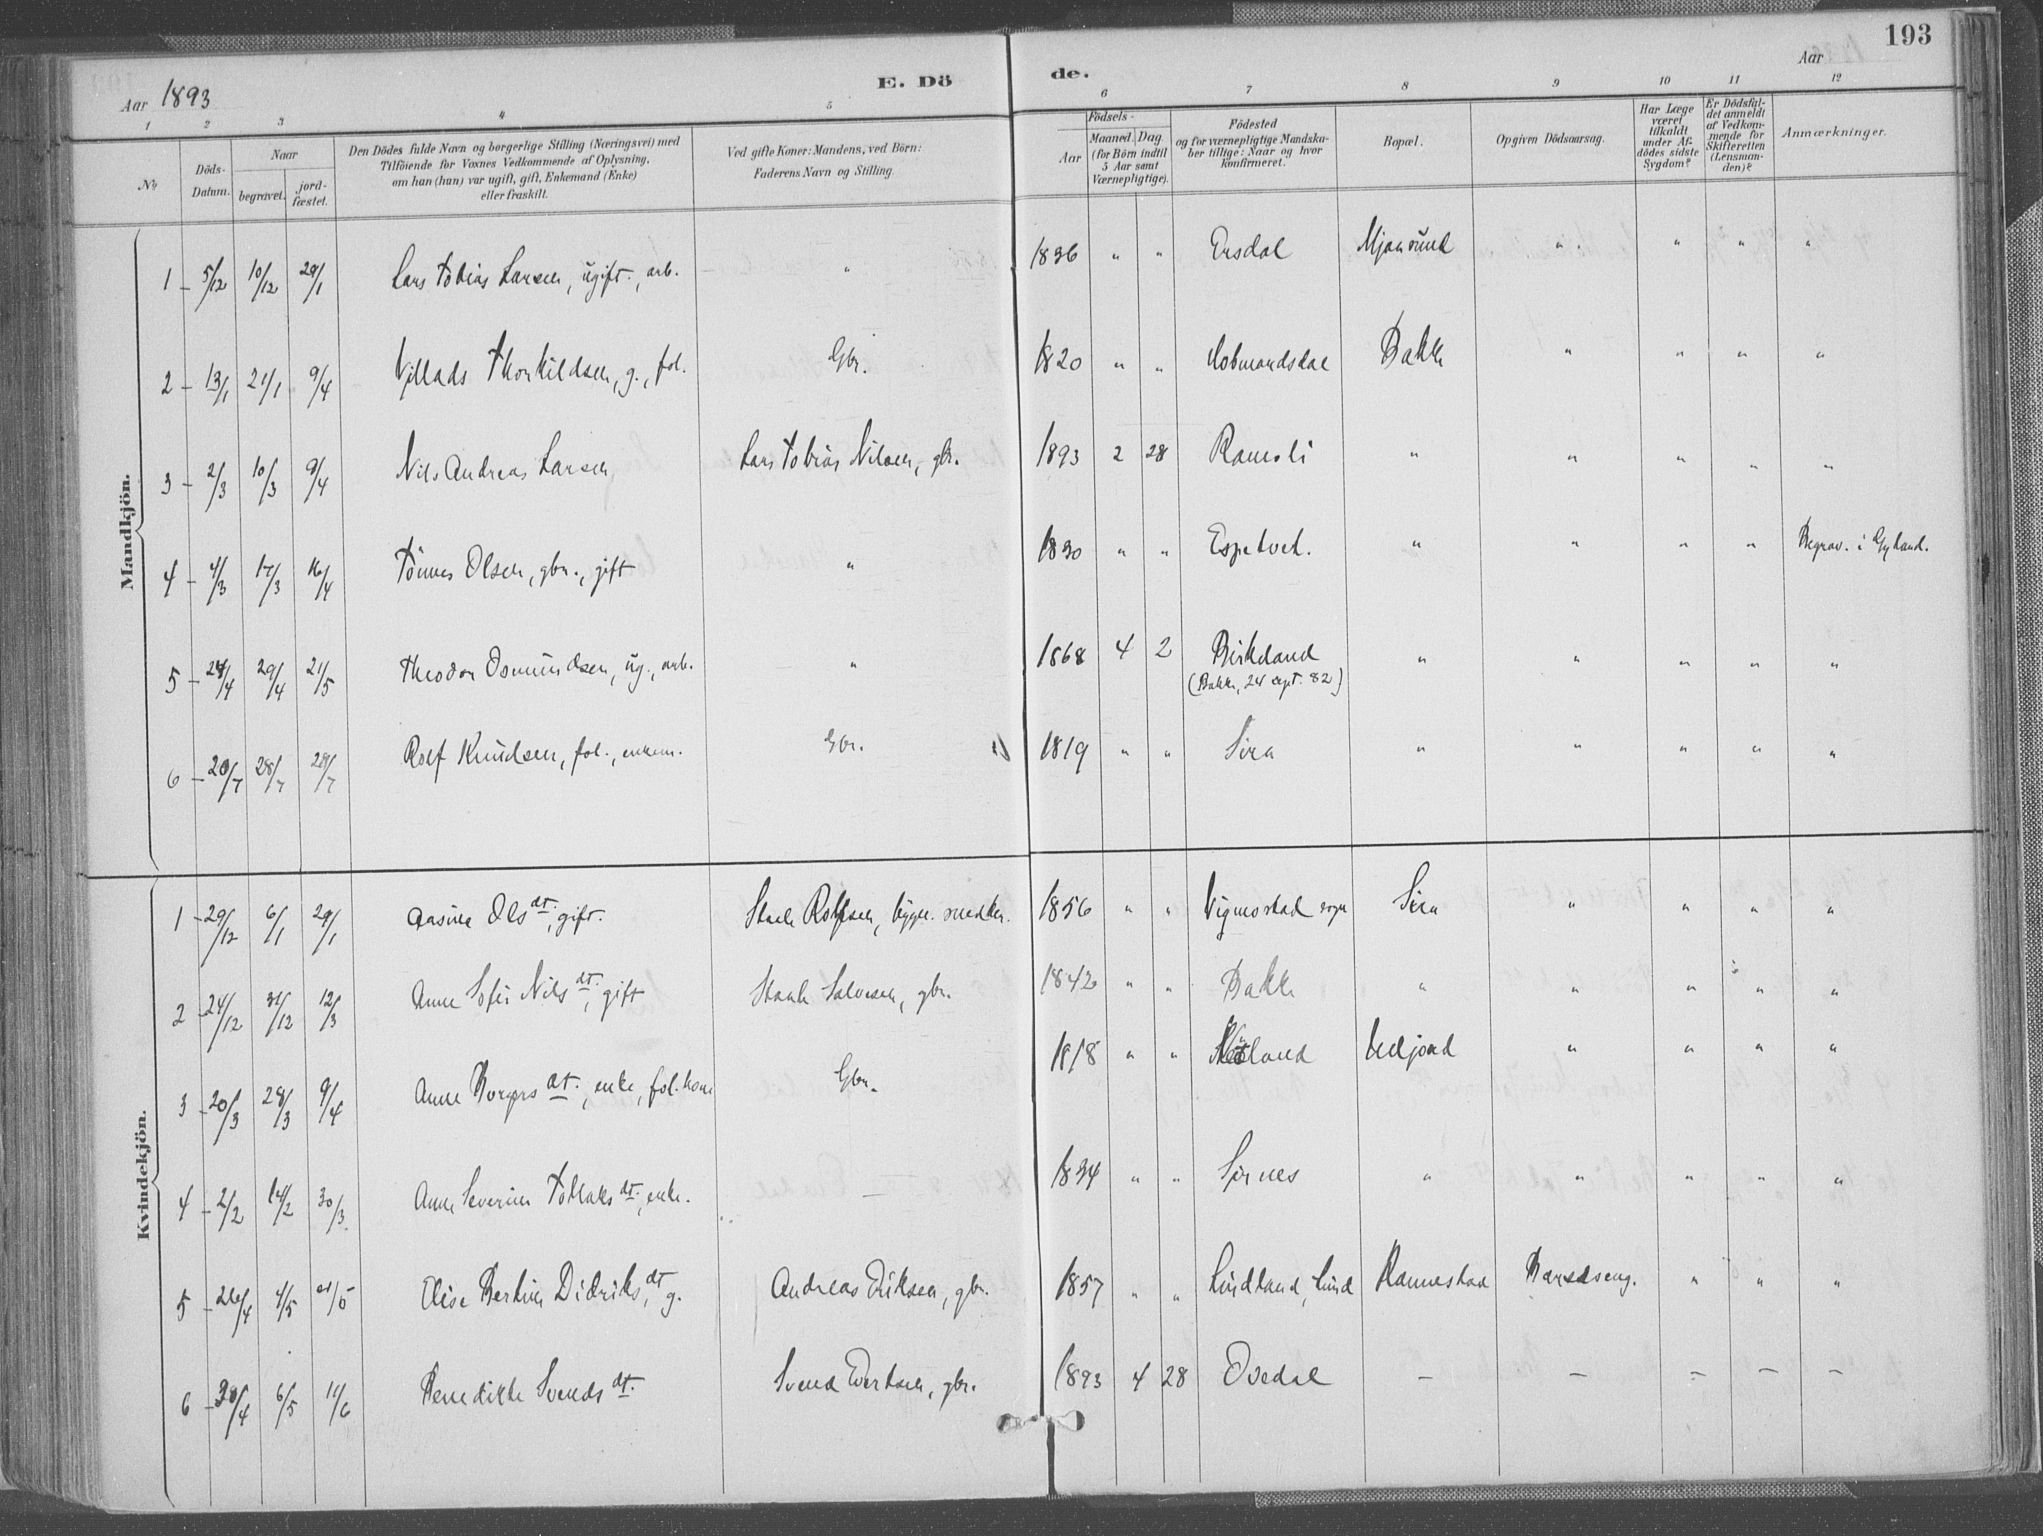 193
Aar 1893
E. Dö
de.
Aar
1 2 3 4 5 6 7 8 9 10 11 12
No
Döds-Datum.
Naar
begravet.
jord-fæstet.
Den Dödes fulde Navn og borgerlige Stilling (Næringsvei) med
Tilföiende for Voxnes Vedkommende af Oplysning,
om han (hun) var ugift, gift, Enkemand (Enke)
eller fraskilt.
Ved gifte Koner: Mandens, ved Börn:
Faderens Navn og Stilling.
Födsels-
Aar
Maaned.
Dag.
(for Börn indtil
5 Aar samt
Værnepligtige).
Födested
og for værnepligtige Mandska-
ber tillige: Naar og hvor
konfirmeret.
Bopæl.
Opgiven Dödsaarsag.
Har Læge
været
tilkaldt
under Af-
dödes sidste
Sygdom?
Er Dödsfal-
det anmeldt
af Vedkom-
mende for
Skifteretten
(Lensman-
den)?
Anmærkninger.
Mandkjön.
1 - 5/12 10/12 29/1 Lars Tobias Larsen, ugift., arb. " 1836 " " Ersdal Mjaasund " " " "
2 - 13/1 21/1 9/4 Villads Thorkildsen, g., fol. Gbr. 1820 " " Bakke " " " "
3 - 2/3 10/3 9/4 Nils Andreas Larsen Lars Tobias Nilsen, gbr. 1893 2 28 Ramsli " " " " "
4 - 4/3 17/3 16/4 Tönnes Olsen, gbr., gift " 1830 " " Espetvet. " " " " Begrav. i Gyland.
5 - 24/4 29/4 21/5 Theodor Osmundsen, ug., arb. " 1868 4 2 Birkeland " " " " "
(Bakke, 24 sept. 82)
6 - 20/7 28/7 28/7 Rolf Knudsen, fol., enkem. Gbr. 1819 " " Sira " " " " "
Kvindekjön.
1 - 29/12 6/1 29/1 Aasine Ols dt., gift. Rolfsen, bygn. snedker. 1856 " " Vigmostad sogn Sira " " " "
2 - 24/12 31/12 12/3 Anne Sofie Nils dt., gift Salvesen, gbr. 1842 " " Bakke " " " " "
3 - 20/3 28/3 9/4 Anne dt., enke, fol. kone Gbr. 1818 " " " " " "
4 - 2/2 14/2 30/3 Anne Severine Tollaks dt., enke. — 1834 " " Sirnes " " " " "
5 - 26/4 4/5 21/5 Elise Bertine Didriks dt., g. Andreas Eriksen, gbr. 1857 " " Lindland, Lund Rannestad Barselseng. " " "
6 - 30/4 6/5 11/6 Benedikte Svends dt. Svend Evertsen, gbr. 1893 4 28 Osedal — — — — —